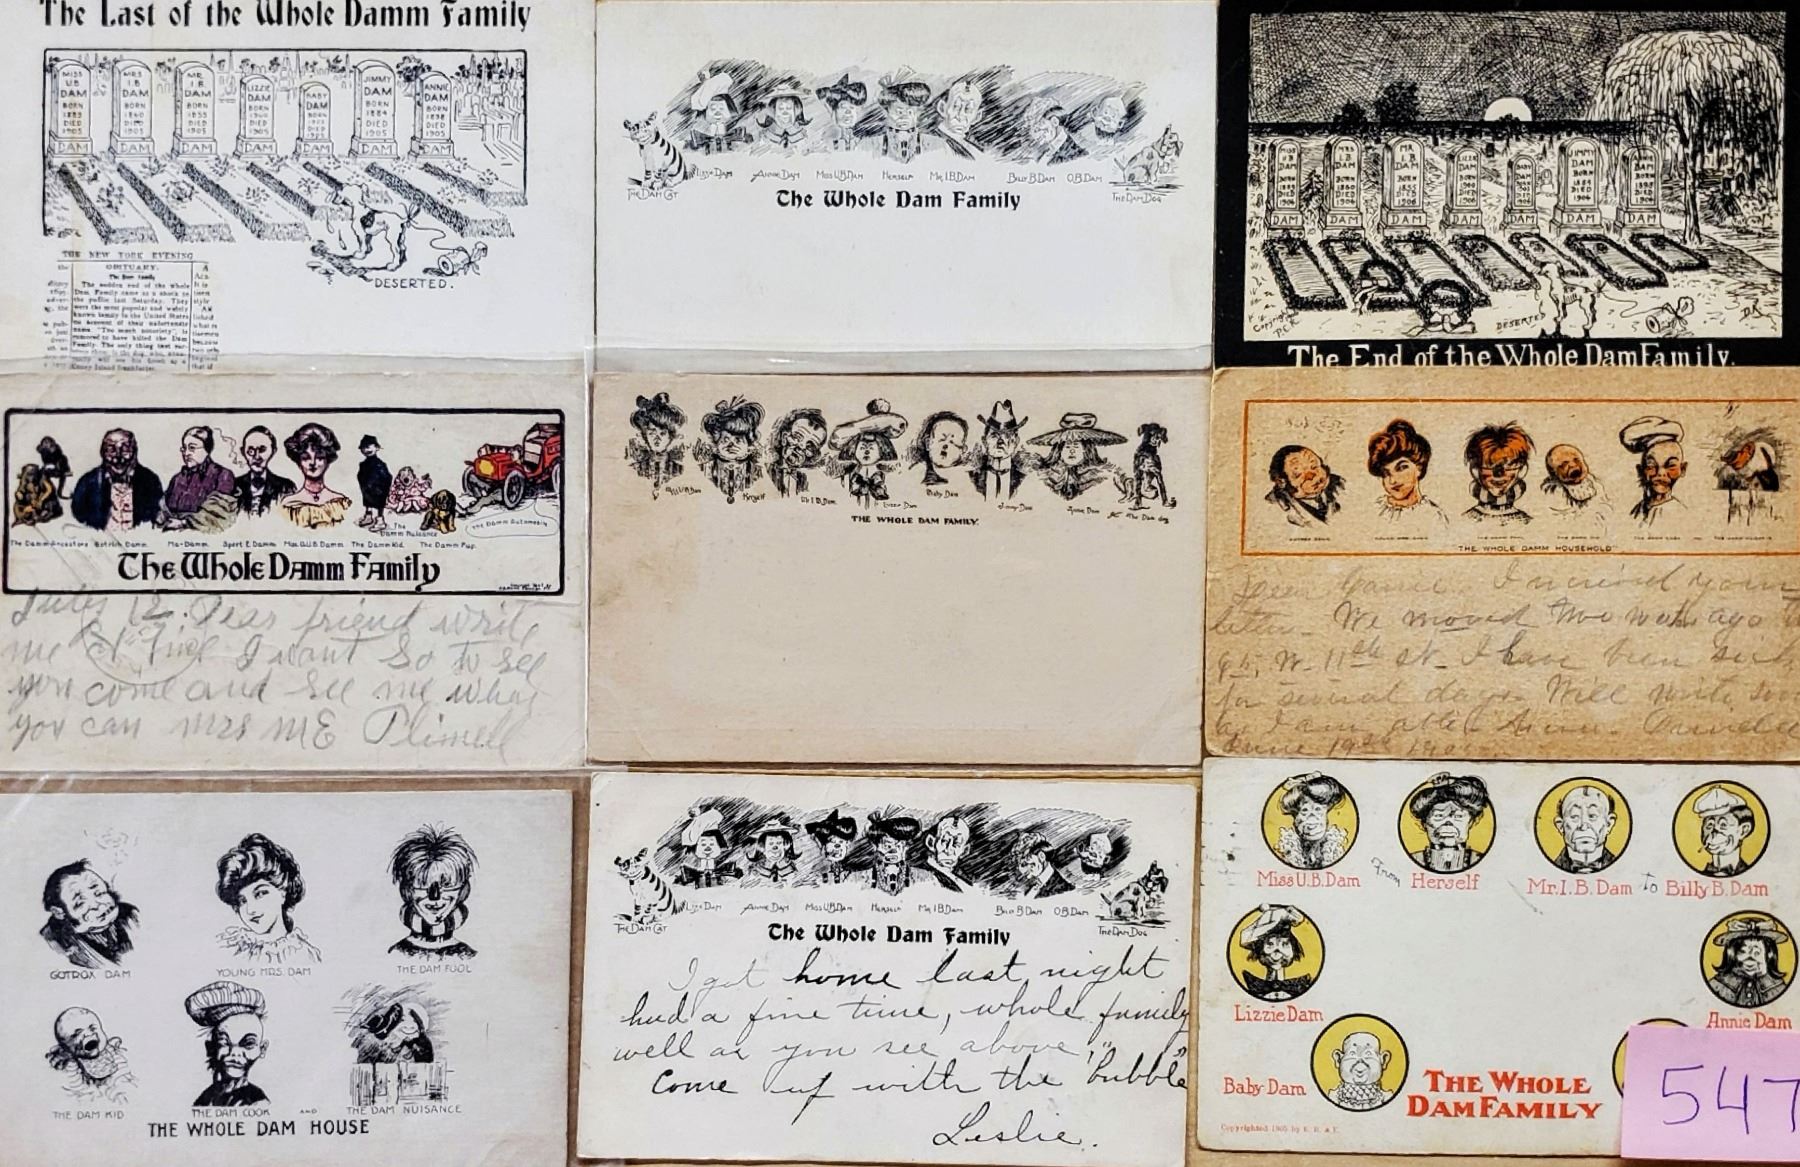 The Last of the Whole Damm Family
MISS U.B. DAM BORN 1883 DIED 1905 DAM
MRS I.B. DAM BORN 1860 DIED 1905 DAM
MR. I.B. DAM BORN 1855 DIED 1905 DAM
LIZZIE DAM BORN 1900 DIED 1905 DAM
BABY DAM BORN DIED DAM
JIMMY DAM BORN 1884 DIED 1905 DAM
ANNIE DAM BORN 1898 DIED 1905 DAM
DESERTED.
THE NEW YORK EVENING
OBITUARY.
The Dam Family
The sudden end of the whole
Dam Family came as a shock to
the public last Saturday. They
were the most popular and widely
known family in the United States
on account of their unfortunate
name. "Too much notoriety" is
rumored to have killed the Dam
Family. The only thing that
Coney Island frankfurter.
The Dam Cat Lizzie Dam Annie Dam Miss U.B. Dam Herself Mr. I.B. Dam Billy B. Dam O.B. Dam The Dam Dog
The Whole Dam Family
MISS U.B. DAM BORN DIED 1906 DAM
MRS I.B. DAM BORN 1860 DIED 1906 DAM
MR I.B. DAM BORN 1855 DIED 1906 DAM
LIZZIE DAM BORN 1900 DIED 1906 DAM
BABY DAM BORN DIED DAM
JIMMY DAM BORN DIED 1906 DAM
ANNIE DAM BORN DIED DAM
Copyright P.C.K.
DESERTED
The End of the Whole Dam Family.
The Damm Ancestors Gotrich Damm. Ma-Damm. Sport E. Damm Miss U.B. Damm The Damm Kid. The Damm Nuisance The Damm Pup. The Damm Automobile
The Whole Damm Family
July 12. Dear friend write
me I want So to see
you come and see me when
you can Mrs ME
Miss U.B. Dam Herself Mr. I.B. Dam Lizzie Dam Baby Dam Jimmy Dam Annie Dam The Dam dog
THE WHOLE DAM FAMILY.
"THE WHOLE DAMM HOUSEHOLD"
I received your
letter. We moved two weeks ago
W. 11th St. I have been sick
for several days. Will write soon
as I am able.
June 19th
GOTROX DAM YOUNG MRS. DAM THE DAM FOOL
THE DAM KID THE DAM COOK AND THE DAM NUISANCE
THE WHOLE DAM HOUSE
The Dam Cat Lizzie Dam Annie Dam Miss U.B. Dam Herself Mr. I.B. Dam Billy B. Dam O.B. Dam The Dam Dog
The Whole Dam Family
I got home last night
had a fine time, whole family
well as you see above,
Come up with the "bubble"
Leslie.
Miss U.B. Dam From Herself Mr. I.B. Dam to Billy B. Dam
Lizzie Dam Annie Dam
Baby Dam
THE WHOLE
DAM FAMILY
Copyrighted 1905 by
547